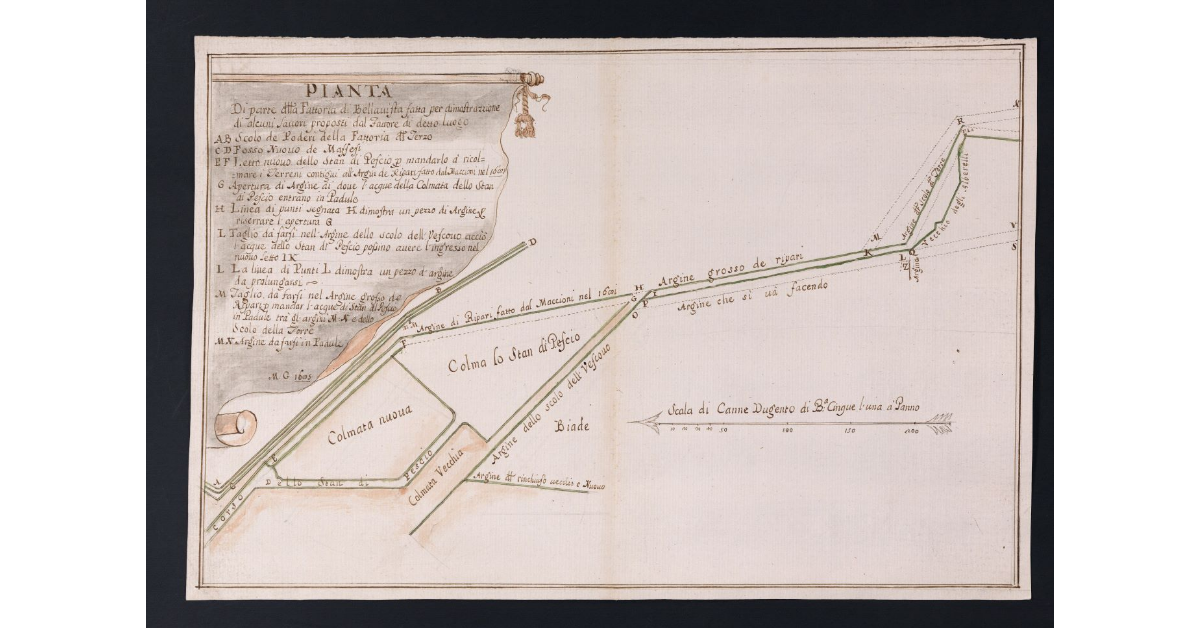 PIANTA
Di parte della Fattoria di Bellavista fatta per dimostrazione
di alcuni lavori proposti dal Fattore di detto luogo
AB Scolo de Poderi della Fattoria del Terzo
CD Fosso Nuovo de Massesi
EF Letto nuovo dello Stan di Pescio p mandarlo à ricol-
mare i Terreni contigui all'Argine de Ripari fatto dal Maccioni nel 1601
G Apertura di Argine di dove l'acque della Colmata dello Stan
di Pescio entrano in Padule
H Linea di punti segnata H dimostra un pezzo di Argine p
riserrare l'apertura G
I Taglio da farsi nell'Argine dello scolo dell'Vescovo acciò
l'acque dello Stan di Pescio possino avere l'ingresso nel
nuovo Letto IK
L La linea di Punti L dimostra un pezzo d'argine
da prolungarsi
M Taglio da farsi nel Argine grosso de
Ripari p mandar l'acque di Stan di Pescio
in Padule tra gli argini M N e dello
Scolo della Torre
MN Argine da farsi in Padule
M G 1603
D
B
N
R
Argine di Ripari fatto dal Maccioni nel 1601
H
G
I
P
O
Argine grosso de ripari
Argine che si và facendo
K
M
L
Q
Argine
Argine del Scolo di Torre
Vecchio degli Alberelli
X
V
S
F
Colma lo Stan di Pescio
Colmata nuova
Argine dello scolo dell'Vescovo
Biade
Scala di Canne Dugento di Ba Cinque l'una a Panno
50
100
150
200
E
D
ello Stan di Pescio
Colmata Vecchia
Argine del rinchiuso vecchio e Nuovo
A
C
Corso